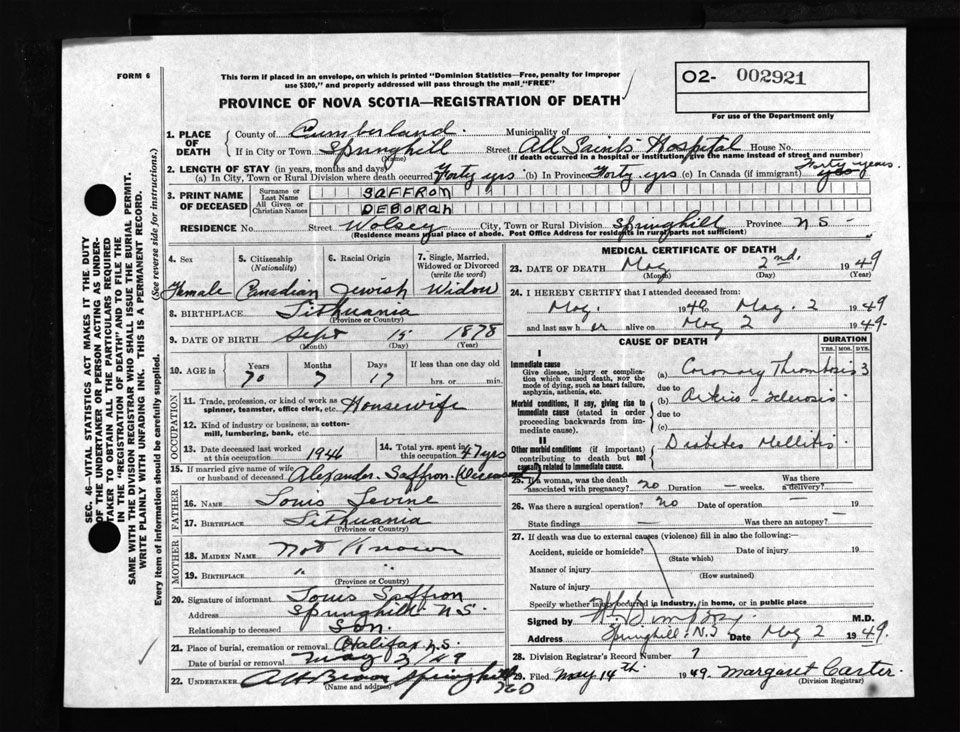 FORM 6
This form if placed in an envelope, on which is printed "Dominion Statistics—Free, penalty for improper
use $300," and properly addressed will pass through the mail "FREE"
PROVINCE OF NOVA SCOTIA—REGISTRATION OF DEATH
O2- 002921
For use of the Department only
1. PLACE OF DEATH { County of Cumberland. Municipality of
If in City or Town Springhill (Name) Street All Saints Hospital House No.
(If death occurred in a hospital or institution, give name instead of street and number)
2. LENGTH OF STAY (in years, months and days)
(a) In City, Town or Rural Division where death occurred Forty yrs (b) In Province Forty yrs (c) In Canada (if immigrant) Forty years.
3. PRINT NAME OF DECEASED { Surname or Last Name SAFFRON
All Given or Christian Names DEBORAH
RESIDENCE No. Street Wolsey City, Town or Rural Division Springhill Province N S -
(Residence means usual place of abode. Post Office Address for residents in rural parts not sufficient)
4. Sex Female
5. Citizenship (Nationality) Canadian
6. Racial Origin Jewish
7. Single, Married, Widowed or Divorced (write the word) Widow
8. BIRTHPLACE Lithuania
(Province or Country)
9. DATE OF BIRTH Sept 15 1878
(Month) (Day) (Year)
10. AGE in { Years 70 Months 7 Days 17 If less than one day old
hrs. or min.
OCCUPATION
11. Trade, profession, or kind of work as spinner, teamster, office clerk, etc. Housewife
12. Kind of industry or business, as cotton-mill, lumbering, bank, etc.
13. Date deceased last worked at this occupation 1946
14. Total yrs. spent in this occupation 47 yrs
15. If married give name of wife or husband of deceased Alexander Saffron (Deceased)
FATHER
16. NAME Louis Levine
17. BIRTHPLACE Lithuania
(Province or Country)
MOTHER
18. MAIDEN NAME Not Known
19. BIRTHPLACE " "
(Province or Country)
20. Signature of informant Louis Saffron
Address Springhill N.S.
Relationship to deceased Son.
21. Place of burial, cremation or removal Halifax N.S.
Date of burial or removal May 3/49
22. UNDERTAKER A H Brown Springhill
(Name and address)
MEDICAL CERTIFICATE OF DEATH
23. DATE OF DEATH May 2nd. 1949
(Month) (Day) (Year)
24. I HEREBY CERTIFY that I attended deceased from:
May. 1949 to May. 2 1949
and last saw her alive on May 2 1949.
CAUSE OF DEATH
DURATION
YRS. MOS. DYS.
I
Immediate cause
Give disease, injury or complication which caused death, not the mode of dying, such as heart failure, asphyxia, asthenia, etc.
(a) Coronary Thrombosis 3
due to
Morbid conditions, if any, giving rise to immediate cause (stated in order proceeding backwards from immediate cause).
(b) Artério-sclerosis
due to
(c)
II
Other morbid conditions (if important) contributing to death but not causally related to immediate cause.
Diabetes Mellitis
25. If a woman, was the death associated with pregnancy? no Duration — weeks. Was there a delivery? —
26. Was there a surgical operation? no Date of operation — 19
State findings — Was there an autopsy? -
27. If death was due to external causes (violence) fill in also the following:—
Accident, suicide or homicide? Date of injury 19
(State which)
Manner of injury
(How sustained)
Nature of injury
Specify whether injury occurred in industry, in home, or in public place
Signed by M.D.
Address Springhill N.S Date May 2 1949.
28. Division Registrar's Record Number 7
29. Filed May 14th 1949. Margaret Carter.
(Division Registrar)
SEC. 46—VITAL STATISTICS ACT MAKES IT THE DUTY
OF THE UNDERTAKER OR PERSON ACTING AS UNDER-
TAKER TO OBTAIN ALL THE PARTICULARS REQUIRED
IN THE "REGISTRATION OF DEATH" AND TO FILE THE
SAME WITH THE DIVISION REGISTRAR WHO SHALL ISSUE THE BURIAL PERMIT.
WRITE PLAINLY WITH UNFADING INK. THIS IS A PERMANENT RECORD.
Every item of information should be carefully supplied. (See reverse side for instructions.)